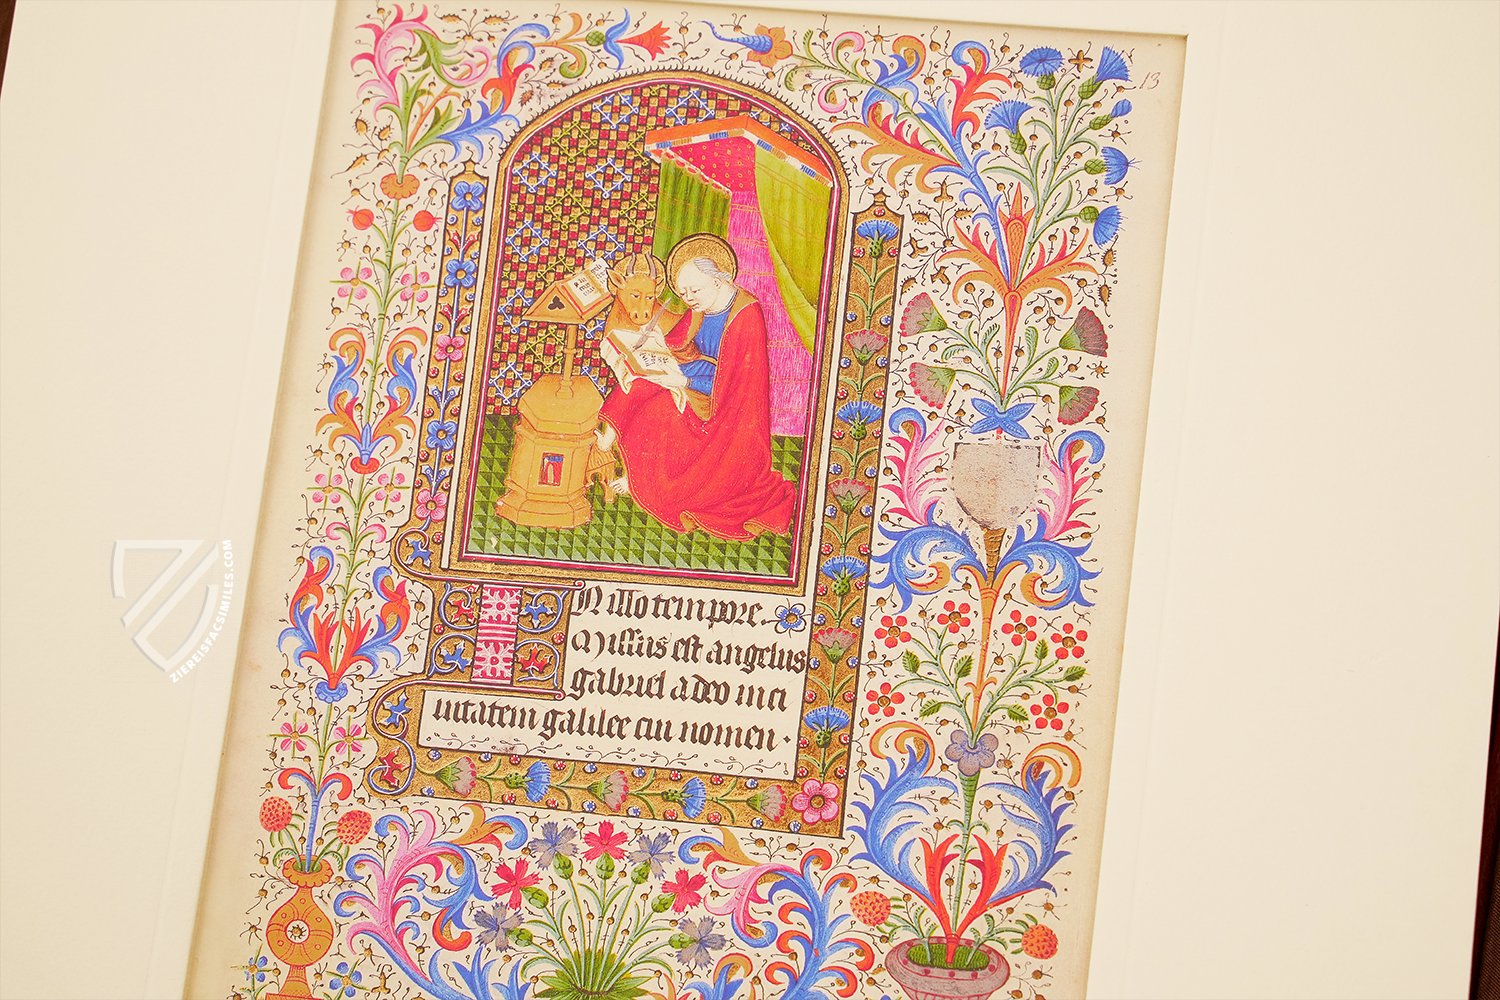 13
IN illo tempore.
Missus est angelus
gabriel a deo in ci
uitatem galilee cui nomen ·
ZIEREISFACSIMILES.COM